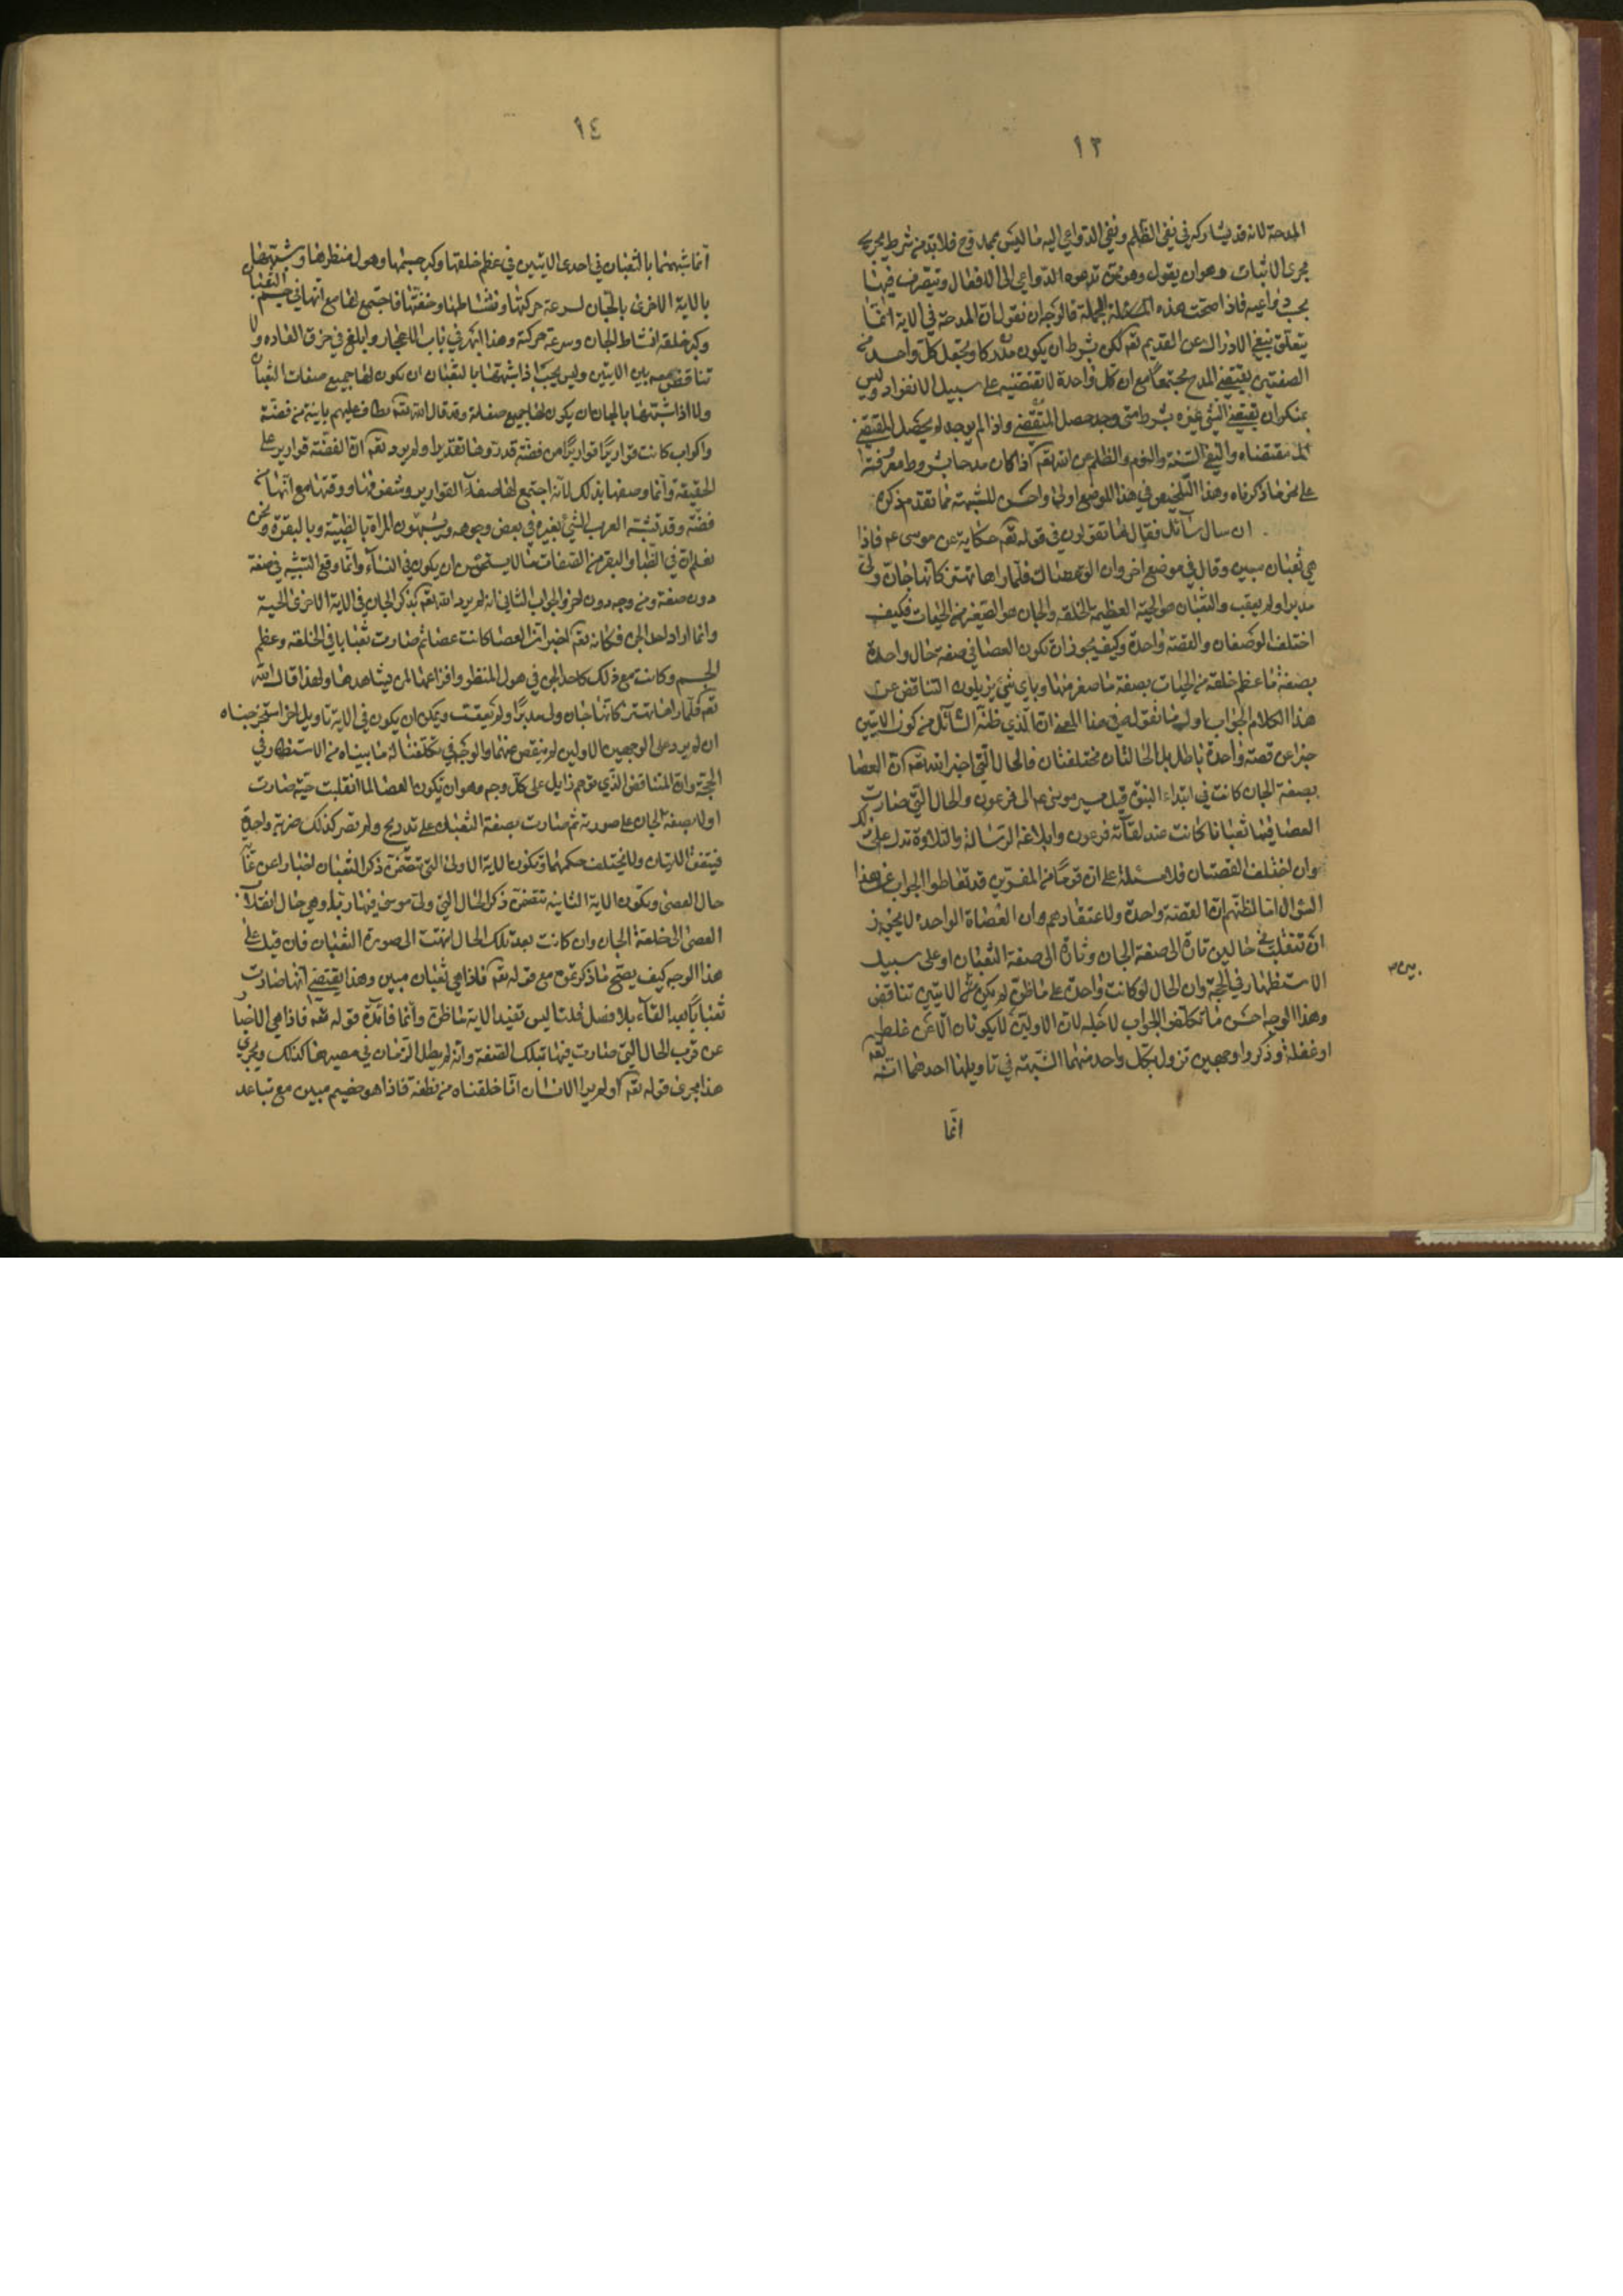 ١٣
المدحة لانه قد يشاركه في نفي الظلم ونفي الدواعي اليه ما ليس بممدوح فلا بد من شرط يجري
مجرى الاثبات وهو ان يقول وهو ممن تدعوه الدواعي الى الافعال ويتصرف فيها
بحسب دواعيه فاذا صحت هذه الجملة فالوجه ان نقول ان المدحة في الاية انما
يتعلق بنفي الادراك عن القديم تعه لكن بشرط ان يكون مدركا ويجعل كل واحد من
الصفتين يقتضي المدح مجتمعا مع ان كل واحدة لا تقتضيه على سبيل الانفراد وليس
بمنكر ان يقتضي الشي غيره بشرط متى وجد حصل المقتضى واذا لم يوجد لم يحصل المقتضي
مقتضاه ونفي السنة والنوم والظلم عن الله تعه اذا كان مدحا بشروط معروفة
على نحو ما ذكرناه وهذا التلخيص في هذا الموضع اولى واحسن للشبهة مما تقدم ذكره
ان سال سآئل فقال ما تقولون في قوله تعه حكاية عن موسى عه فاذا
هي ثعبان مبين وقال في موضع اخر وان الق عصاك فلما راها تهتز كانها جان ولى
مدبرا ولم يعقب والثعبان هو الحية العظيمة الخلقه والجان هو الصغير من الحيات فكيف
اختلف الوصفان والقصة واحدة وكيف يجوز ان تكون العصا في صفة حال واحدة
بصفة ما عظم خلقه من الحيات بصفة ما صغر منها وباي شي يزيلون التناقض عن
هذا الكلام الجواب اول ما نقوله في هذا المعنى ان الذي ظنه السآئل من كون الايتين
خبرا عن قصة واحدة باطل بل الحالتان مختلفتان فالحال التي اخبر الله تعه ان العصا
بصفة الجان كانت في ابتداء النبوة قبل مسير موسى عه الى فرعون والحال التي صارت
العصا فيها ثعبانا كانت عند لقآئه فرعون وابلاغه الرسالة والتلاوة تدل على ذلك
وان اختلف القصتان فلا مسئلة على ان قوما من المفسرين قد تعاطوا الجواب عن هذا
السؤال اما لظنهم ان القصة واحدة ولاعتقادهم ان العصاة الواحدة لا يجوز
ان تنقلب في حالين تارة الى صفة الجان وتارة الى صفة الثعبان او على سبيل
الاستظهار في الحجة وان الحال لو كانت واحدة على ما ظن لم يكن بين الايتين تناقض
وهذا الوجه احسن ما تكلف الجواب لاجله لان الاولين لا يكونان الا عن غلط
او غفلة وذكروا وجهين تزول بكل واحد منهما الشبهة في تاويلها احدهما انه تعه
انما
١٤
انما شبهها بالثعبان في احدى الايتين في عظم خلقها وكبر جسمها وهول منظرها وشبهها
بالاية الاخرى بالجان لسرعة حركتها ونشاطها وخفتها فاجتمع لها مع انها في جسم الثعبان
وكبر خلقه نشاط الجان وسرعة حركته وهذا ابهر في باب الاعجاز وابلغ في خرق العاده ولا
تناقض معه بين الايتين وليس يجب اذا شبهها بالثعبان ان يكون لها جميع صفات الثعبان
ولا اذا شبهها بالجان ان يكون لها جميع صفاته وقد قال الله تعه يطاف عليهم بآنية من فضة
واكواب كانت قواريرا قواريرا من فضة قدروها تقديرا ولم يرد تعه ان الفضة قوارير على
الحقيقة وانما وصفها بذلك لانه اجتمع لها صفآء القوارير وشفوفها ورقتها مع انها من
فضة وقد تشبه العرب الشئ بغيره في بعض وجوهه ويشبهون المراة بالظبية وبالبقرة ونحن
نعلم ان في الظبا والبقر من الصفات ما لا يستحسن ان يكون في النسآء وانما وقع التشبيه في صفة
دون صفة ومن وجه دون اخر والجواب الثاني انه لم يرد الله تعه بذكر الجان في الاية الاخرى الحية
وانما اراد احد الجن فكانه تعه اخبر ان العصا كانت عصا ثم صارت ثعبانا في الخلقه وعظم
الجسم وكانت مع ذلك كاحد الجن في هول المنظر وافزاعها لمن يشاهدها ولهذا قال الله
تعه فلما راها تهتز كانها جان ولى مدبرا ولم يعقب ويمكن ان يكون في الاية تاويل اخر استخرجناه
ان لم يزد على الوجهين الاولين لم ينقص عنهما والوجه في تكلفنا له ما بيناه من الاستظهار في
الحجة وان التناقض الذي توهم زايل على كل وجه وهو ان تكون العصا لما انقلبت حية صارت
اولا بصفة الجان على صورته ثم صارت بصفة الثعبان على تدريج ولم تصر كذلك ضربة واحدة
فيتفق الايتان ولا يختلف حكمهما وتكون الاية الاولى التي تتضمن ذكر الثعبان اخبارا عن غاية
حال العصى وتكون الاية الثانية تتضمن ذكر الحال التي ولى موسى فيها هاربا وهي حال انقلاب
العصى الى خلقة الجان وان كانت بعد تلك الحال انتهت الى صورة الثعبان فان قيل على
هذا الوجه كيف يصح ما ذكرتموه مع قوله تعه فاذا هي ثعبان مبين وهذا يقتضي انها صارت
ثعبانا بعد القآء بلا فصل قلنا ليس تفيد الاية ما ظن وانما فائدة قوله تعه فاذا هي الاخبار
عن قرب الحال التي صارت فيها بتلك الصفة وانه لم يطل الزمان في مصيرها كذلك ويجري
هذا مجرى قوله تعه اولم ير الانسان انا خلقناه من نطفة فاذا هو خصيم مبين مع تباعد